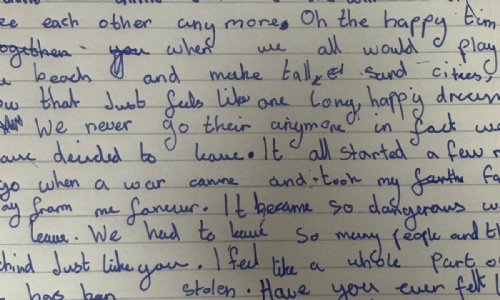 ee each other any more. Oh the happy tim
ogether. you when we all would play
e beach and make tall sand cities,
ow that Just feels like one long, happy dream
We never go their anymore in fact we
ave decided to leave. It all started a few m
go when a war came and took my fa
ay from me forever. It became so dangerous w
leave. We had to leave so many people and th
hind Just like you. I feel like a whole part o
has ben stolen. Have you ever felt